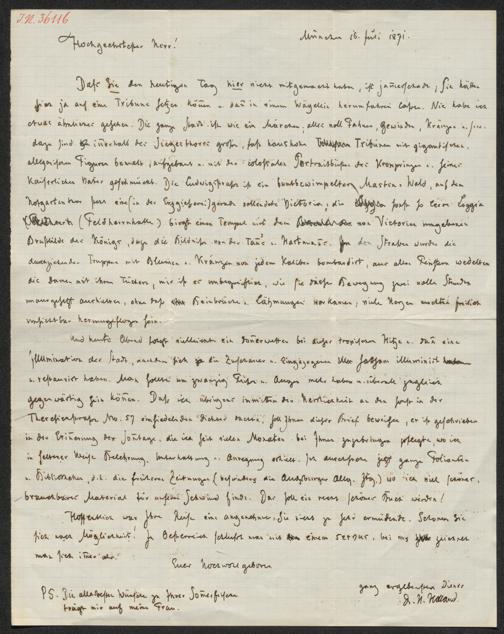 I.N. 36116
München 16. Juli 1871.
Hochgeehrtester Herr!
Daß Sie den heutigen Tag hier nicht mitgemacht haben, ist jam̄erschade, Sie hätten
ja auf eine Tribüne können u. dann in einem Wägelein herumfahren lassen. Nie habe ich
etwas ähnliches gesehen. Die ganze Stadt ist wie ein Märchen, alles voll Fahnen, Gewinden, Kränzen u.
dazu sind innerhalb des Siegesthores große, fast haushohe Tribünen mit gigantischen,
allegorischen Figuren bemalt, aufgebaut u. mit den colossalen Portraitbüsten des Kronprinzen u. seines
Kaiserlichen Vater geschmückt. Die Ludwigstraße ist ein buntbewimpelter Masten-Wald, auf den
Victoria, die sonst so leere Loggia
(Feldherrnhalle) birgt einen Tempel mit dem von Victorien umgebenen
Brustbilde des Königs, dazu die Bildnisse von der Tann u. Hartmann. In den Straßen wurden die
durchziehenden Truppen mit Blumen u. Kränzen von jedem Kaliber bombardirt, aus allen Fenstern wedelten
die Damen mit ihren Tüchern, mir ist es unbegreiflich, wie sie diese Bewegung zwei volle Stunden
unausgesetzt aushielten, ohne daß Beinbrüche u. Lähmungen vorkamen, viele Herzen mochten freilich
unsichtbar herausgeflogen sein.
Und heute Abend folgt vielleicht ein Donnerwetter bei dieser tropischen Hitze u. dann eine
Illumination der Stadt, nachdem sich die Zuschauer u. Eingezogenen illuminirt
u. restaurirt haben. Man sollte um zwanzig Füße u. Augen mehr haben u. überall zugleich
gegenwärtig sein können. Daß ich übrigens inmitten der Herrlichkeit an den sonst in der
Theresienstraße No. 57 einsiedelnden dachte, soll Ihnen dieser Brief beweisen, er ist geschrieben
in der Erinnerung der Sonntage, die ich seit vielen Monaten bei Ihnen zuzubringen pflegte wo ich
in seltener Weise Belehrung, Unterhaltung u. Anregung erhielt. Ich durchstöbere jetzt ganze Folianten
u. Bibliotheken, d.h. die früheren Zeitungen (besonders die Augsburger Allg. Ztg.) wo ich viel schönes,
brauchbares Material für unseren Schwind finde. Das soll ein recht schönes Buch werden!
Hoffentlich war Ihre Reise eine angenehme, Sie nicht zu sehr ermüdende. Schonen Sie
sich nach Möglichkeit! In Oesterreich schließt man mit einem servus, bei uns zeichnet
man sich immer als
Euer Hochwohlgeboren
ganz ergebensten Diener
Dr. H. Holland.
PS. Die allerbesten Wünsche zu Ihrer Som̄erfrische
trägt mir auf meine Frau.